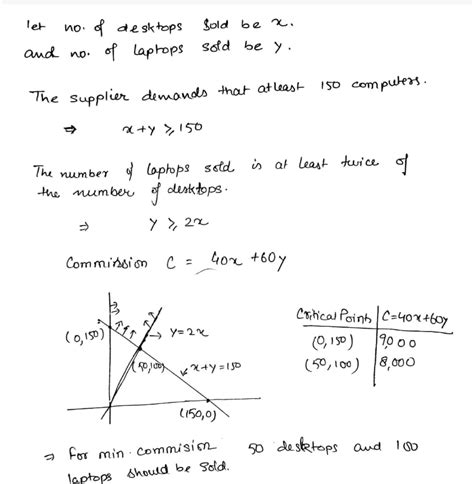 let no. of desktops sold be x.
and no. of laptops sold be y.
The supplier demands that atleast 150 computers.
⇒ x+y ≥ 150
The number of laptops sold is at least twice of
the number of desktops.
⇒ y ≥ 2x
Commission C = 40x + 60y
(0,150)
y=2x
(50,100)
x+y=150
(150,0)
Critical Points | C=40x+60y
(0,150) | 9,000
(50,100) | 8,000
⇒ For min. commision 50 desktops and 100
laptops should be sold.